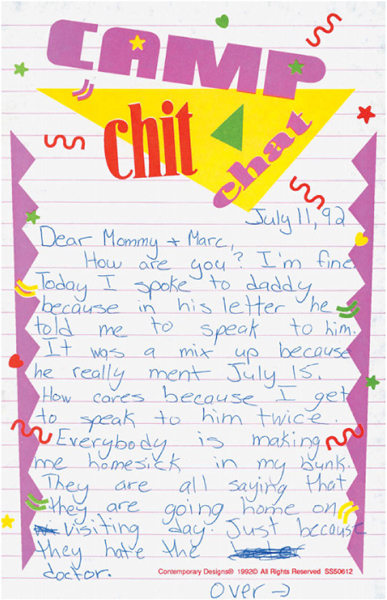 CAMP
chit
chat
July 11, 92
Dear Mommy + Marc,
How are you? I'm fine
Today I spoke to daddy
because in his letter he
told me to speak to him.
It was a mix up because
he really ment July 15.
How cares because I get
to speak to him twice.
Everybody is making
me homesick in my bunk.
They are all saying that
they are going home on
visiting day. Just because
they hate the
doctor.
Contemporary Designs® 1992© All Rights Reserved SS50612
over →